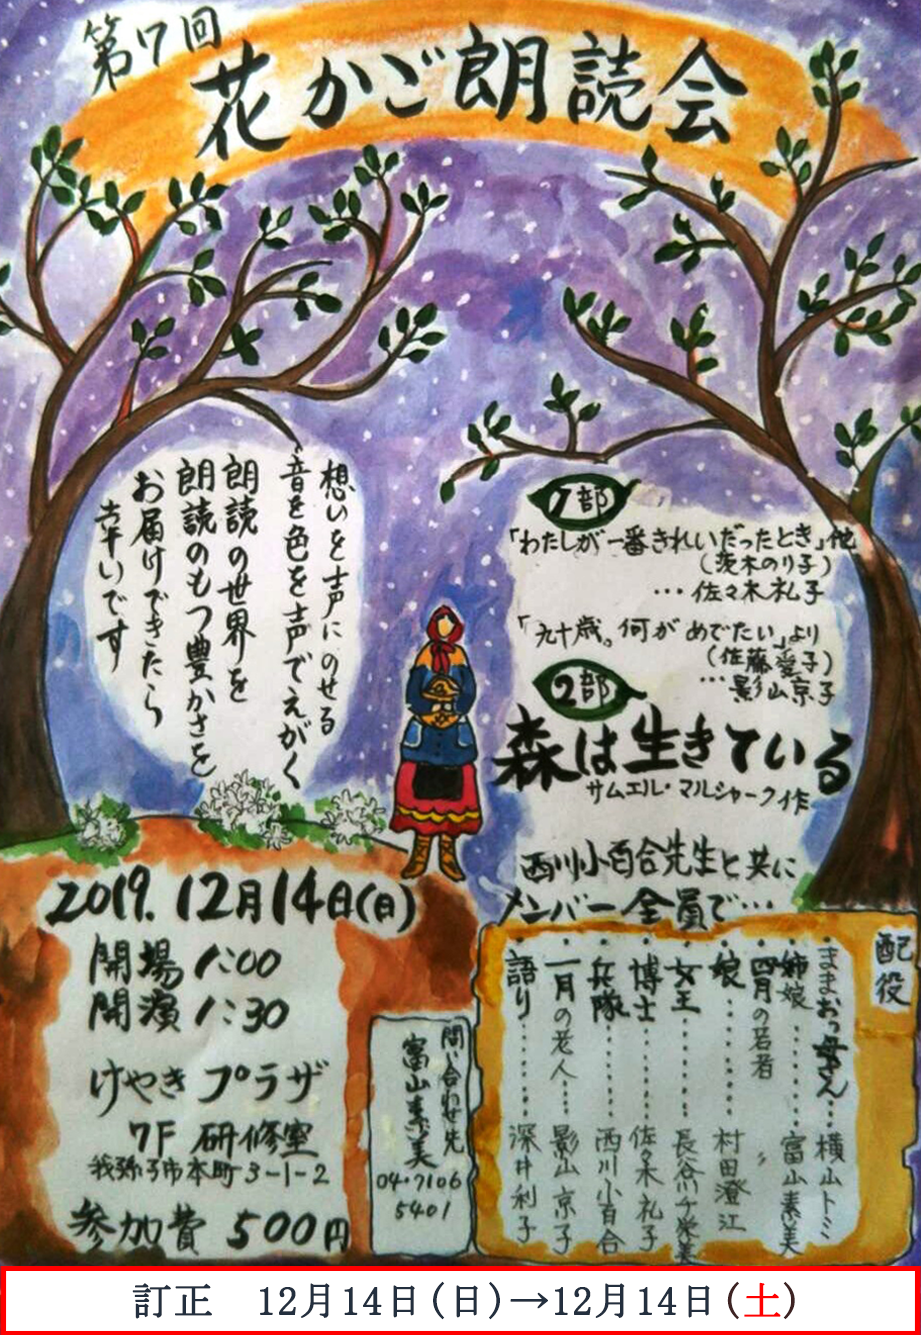 第7回
花かご朗読会
想いを声にのせる
音を色を声でえがく
朗読の世界を
朗読のもつ豊かさを
お届けできたら
幸いです
1部
「わたしが一番きれいだったとき」他
(茨木のり子)
…佐々木礼子
「九十歳。何がめでたい」より
(佐藤愛子)
…影山京子
2部
森は生きている
サムエル・マルシャーク作
西川小百合先生と共に
メンバー全員で…
2019.12月14日(日)
開場 1:00
開演 1:30
けやきプラザ
7F 研修室
我孫子市本町3-1-2
参加費 500円
問い合わせ先
富山素美
04・7106
5401
配役
ままおっ母さん…横山トミ
姉娘……富山素美
四月の若者 〃
娘……村田澄江
女王……長谷川千栄美
博士……佐々木礼子
兵隊……西川小百合
一月の老人…影山京子
語り……深井利子
訂正 12月14日(日)→12月14日(土)